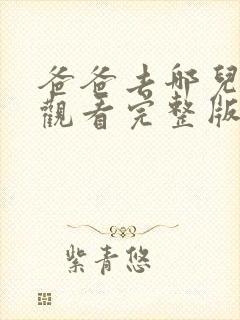 爸爸去哪兒
觀看完整版
紫青悠